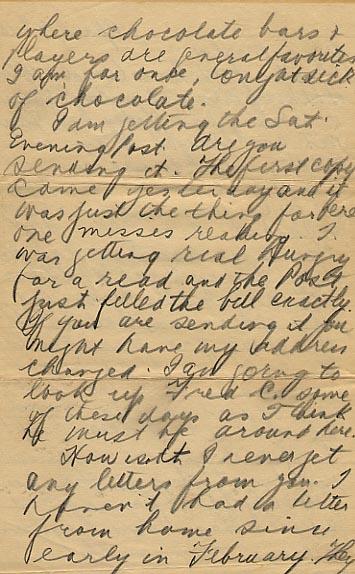 where chocolate bars &
players are general favorites
I am for once, long at sick
of chocolate.
I am getting the Sat.
Evening Post. Are you
sending it. The first copy
came yesterday and it
was just the thing for here
one misses reading. I
was getting real hungry
for a read and the Post
just filled the bill exactly.
If you are sending it you
might have my address
changed. I am going to
look up Fred C. some
of these days as I think
he must be around here.
How is it I never get
any letters from you. I
haven't had a letter
from home since
early in February. They